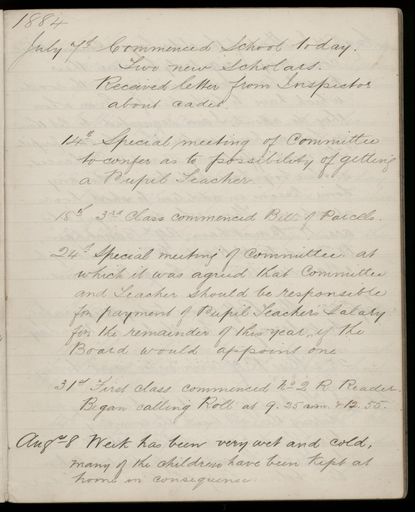 1884
July 7th Commenced School today.
Two new Scholars.
Received letter from Inspector
about cadet.
14th Special meeting of Committee
to confer as to possibility of getting
a Pupil Teacher.
15th 3rd Class commenced Bills of Parcels.
24th Special meeting of Committee at
which it was agreed that Committee
and Teacher should be responsible
for payment of Pupil Teachers Salary
for the remainder of this year, if the
Board would appoint one
31st First class commenced No 2 R. Reader.
Began calling Roll at 9.25 am & 12.55.
Augst 8 Week has been very wet and cold,
many of the children have been kept at
home in consequence